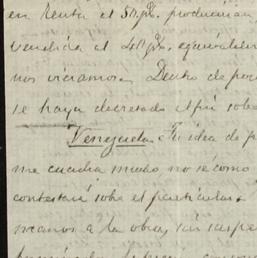 en renta el 50 p%. producirian
vendida al 40 p%, equivalen
nos viciamos. Dentro de poc
se haya decretado
Venezuela. Tu idea de p
me cuadra mucho, no sé como
contestará sobre el particular.
manos a la obra, sin